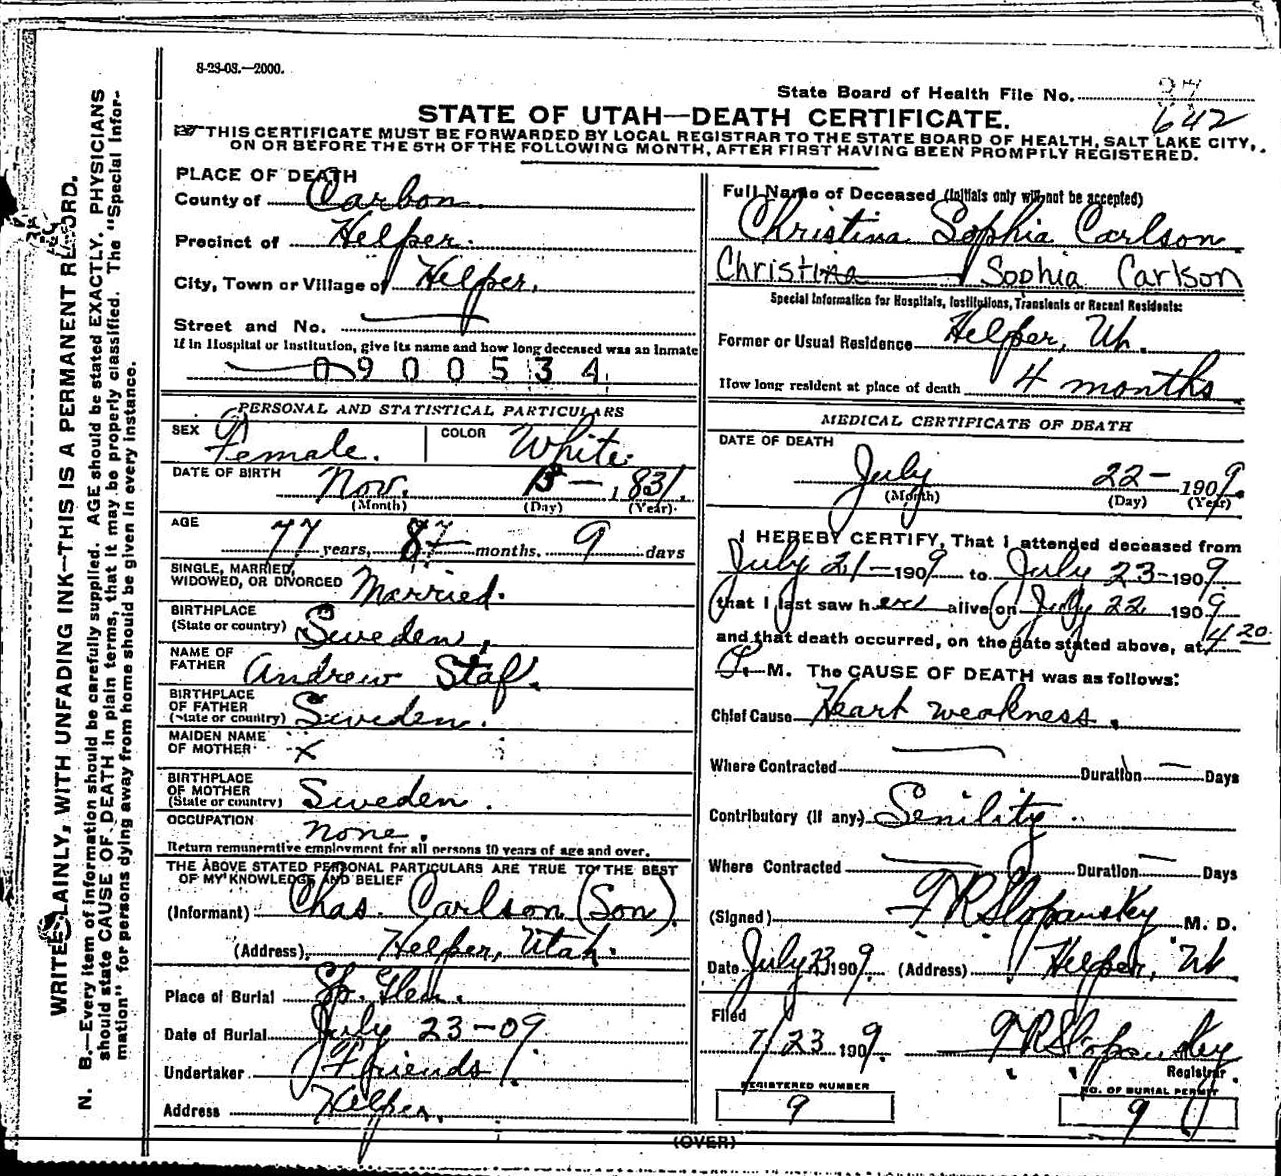 8-23-08.—2000.
State Board of Health File No. 27
642
STATE OF UTAH—DEATH CERTIFICATE.
THIS CERTIFICATE MUST BE FORWARDED BY LOCAL REGISTRAR TO THE STATE BOARD OF HEALTH, SALT LAKE CITY,
ON OR BEFORE THE 5TH OF THE FOLLOWING MONTH, AFTER FIRST HAVING BEEN PROMPTLY REGISTERED.
WRITE PLAINLY, WITH UNFADING INK—THIS IS A PERMANENT RECORD.
N. B.—Every item of information should be carefully supplied. AGE should be stated EXACTLY. PHYSICIANS
should state CAUSE OF DEATH in plain terms, that it may be properly classified. The "Special Infor-
mation" for persons dying away from home should be given in every instance.
PLACE OF DEATH
County of Carbon.
Precinct of Helper.
City, Town or Village of Helper.
Street and No.
If in Hospital or Institution, give its name and how long deceased was an inmate
0900534
PERSONAL AND STATISTICAL PARTICULARS
SEX Female. COLOR White.
DATE OF BIRTH Nov. 13 — 1831.
(Month) (Day) (Year)
AGE 77 years, 8 months, 9 days
SINGLE, MARRIED,
WIDOWED, OR DIVORCED Married.
BIRTHPLACE
(State or country) Sweden,
NAME OF
FATHER Andrew Staf.
BIRTHPLACE
OF FATHER
(State or country) Sweden.
MAIDEN NAME
OF MOTHER x
BIRTHPLACE
OF MOTHER
(State or country) Sweden.
OCCUPATION
none.
Return remunerative employment for all persons 10 years of age and over.
THE ABOVE STATED PERSONAL PARTICULARS ARE TRUE TO THE BEST
OF MY KNOWLEDGE AND BELIEF
(Informant) Chas. Carlson (Son).
(Address) Helper, Utah.
Place of Burial Sp. Glen.
Date of Burial July 23-09
Undertaker Friends.
Address Helper.
Full Name of Deceased (Initials only will not be accepted)
Christina Sophia Carlson
Christine Sophia Carlson
Special Information for Hospitals, Institutions, Transients or Recent Residents:
Former or Usual Residence Helper, Ut.
How long resident at place of death 4 months
MEDICAL CERTIFICATE OF DEATH
DATE OF DEATH
July 22 — 1909.
(Month) (Day) (Year)
I HEREBY CERTIFY, That I attended deceased from
July 21 — 1909 to July 23 - 1909.
that I last saw her alive on July 22 1909
and that death occurred, on the date stated above, at 4 20
M. The CAUSE OF DEATH was as follows:
Chief Cause Heart weakness.
Where Contracted — Duration — Days
Contributory (if any) Senility.
Where Contracted — Duration — Days
(Signed) F R Slopansky M. D.
Date July 23 1909. (Address) Helper, Ut
Filed
7/23 1909. F R Slopansky
Registrar.
REGISTERED NUMBER
9
NO. OF BURIAL PERMIT
9
(OVER)